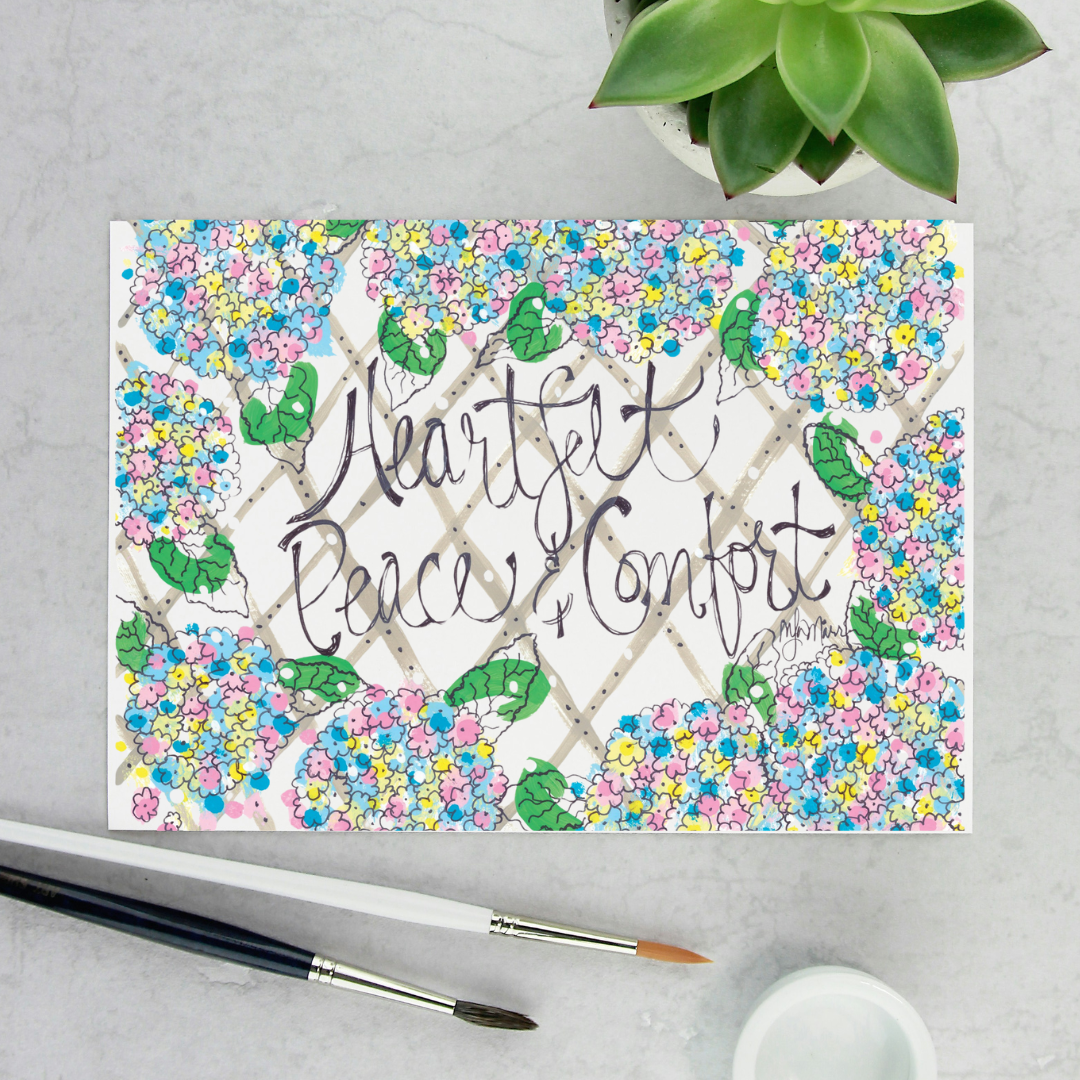 Heartfelt
Peace & Comfort